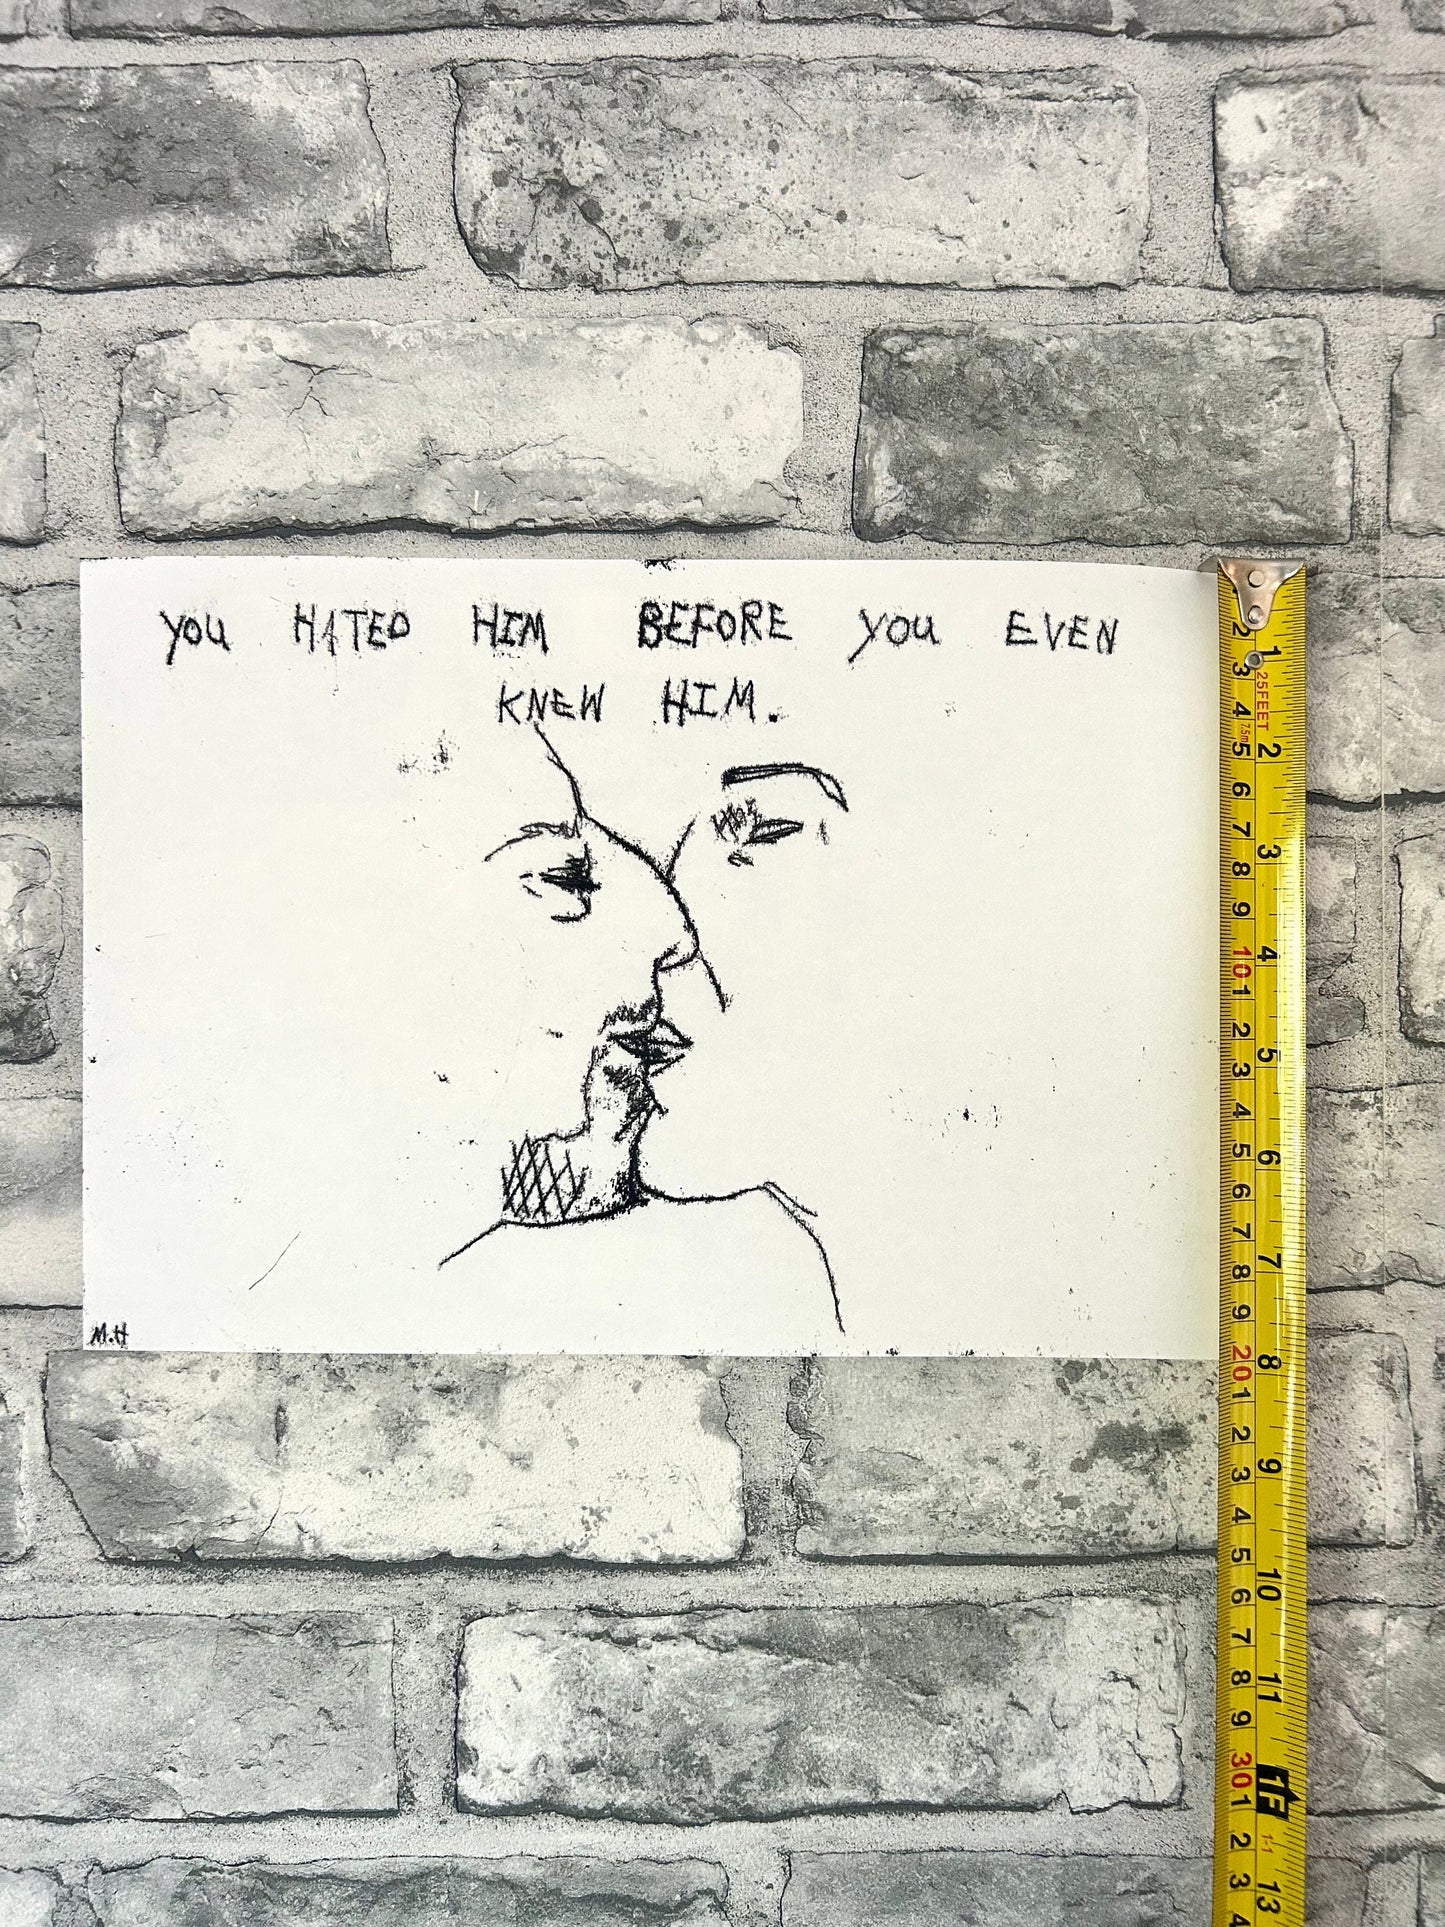 YOU HATED HIM BEFORE YOU EVEN
KNEW HIM.
M.H
1
2
3
4
5
6
7
8
9
10
11
1F
13
2
3
4
5
6
7
8
9
10
1
2
3
4
5
6
7
8
9
20
1
2
3
4
5
6
7
8
9
30
1
2
3
4
25FEET
7.5m